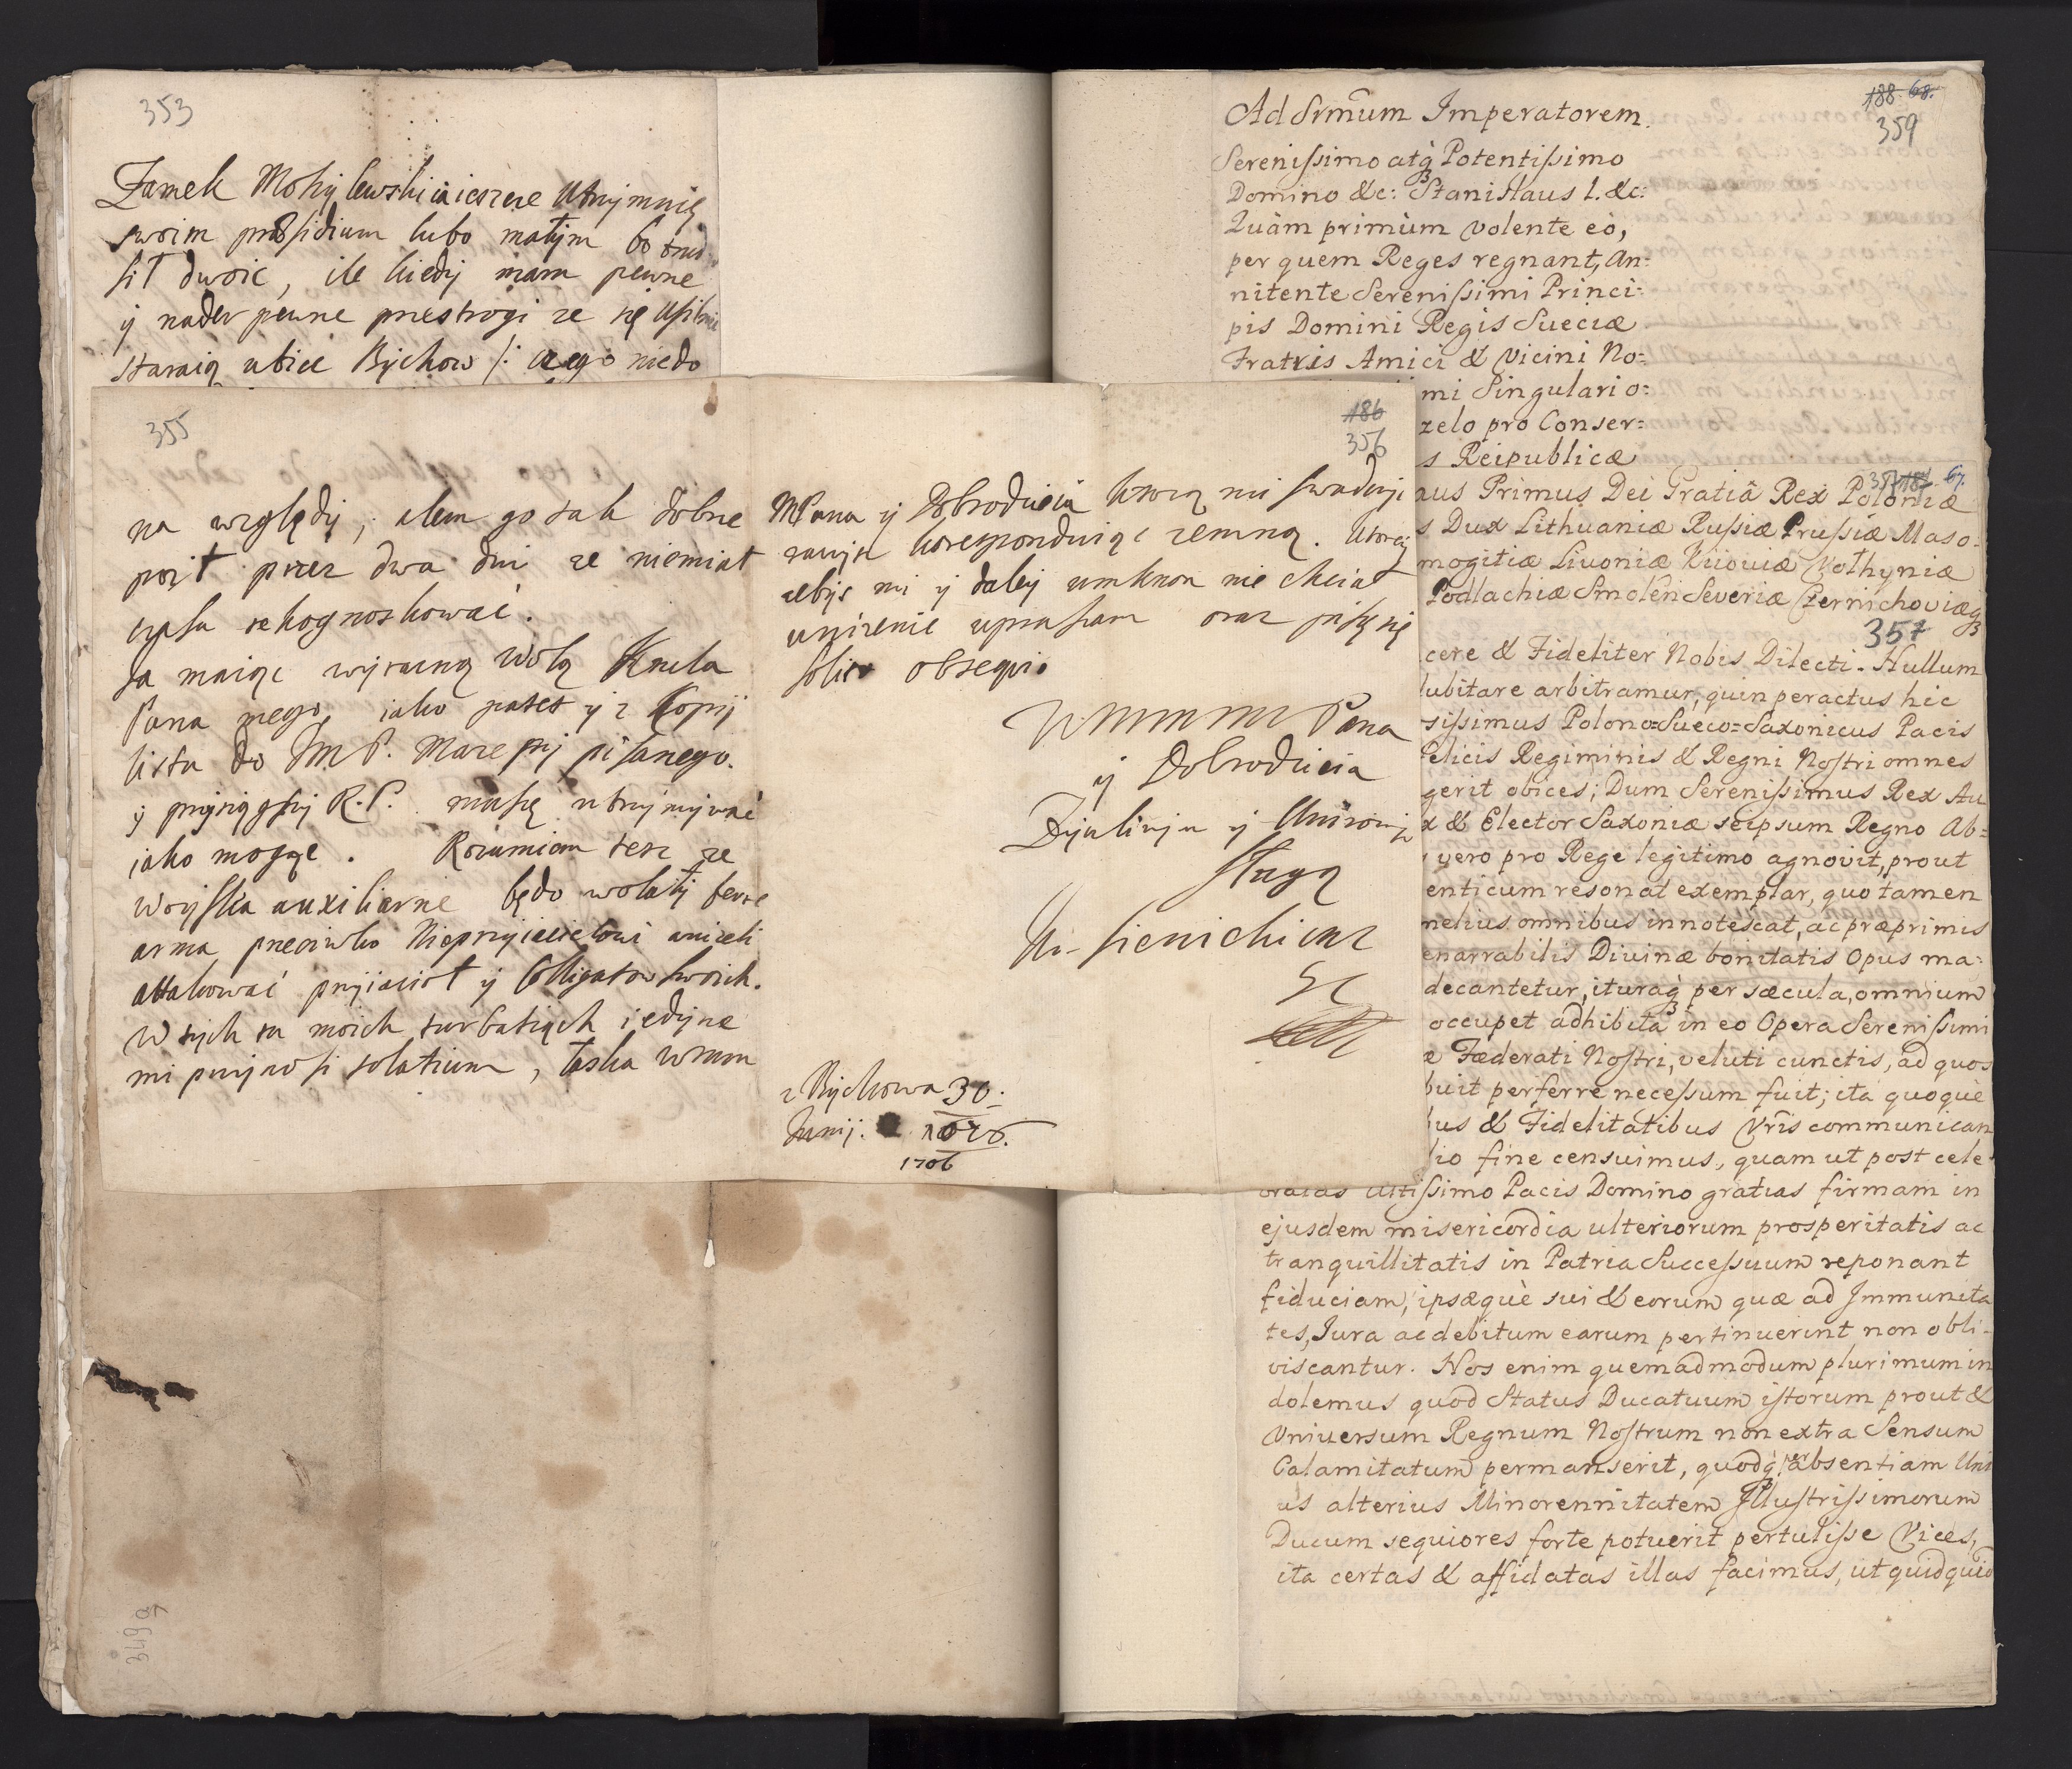 353
Zamek Mohylewski ia ieszcze utrzymuię
swoim præsidium lubo małym bo trud
sił dwoić, ile kiedy mam pewne
y nader pewne przestrogi ze się usilnie
staraią ubiec Bychow /: czego niedo
355
na względy, alem go tak dobrze
poił przez dwa dni ze niemiał
czasu rekognoskować.
Ja maiąc wyrazną wolą Krula
Pana mego, iako patet y z Kopij
listu do JM P. Mazepy pisanego.
y przysięgszy R. P. muszę utrzymywać
iako mogąc. Rozumiem tesz ze
woyska auxiliarne będo wolały ferre
arma przeciwko Nieprzyiacielowi anizeli
attakować przyiacioł y Colligatow swoich.
W tych tu moich turbatiach iedyne
mi przywosi solatium, łaska WMM
186
356
MPana y Dobrodzieia ktorą mi swadczyc
raczysz koresponduiąc zemną. Ktorey
zebys mi y daley umknoc nie chciał
unizenie upraszam oraz piszę się
solito obsequio
WMMMM Pana
y Dobrodzieia
Zyczliwym y Unizonym
sługą
Kr. Sienichicaz
z Bychowa 30.
Junij.
1706
188 68.
359
Ad Srmum Imperatorem.
Serenissimo atq Potentissimo
Domino &c: Stanislaus I. &c:
Quàm primùm volente eò,
per quem Reges regnant, An:
nitente Serenissimi Princi:
pis Domini Regis Sueciæ
Fratris Amici & Vicini No:
mi Singulari o:
zelo pro Conser:
s Reipublicæ
357 187. 67.
aus Primus Dei Gratiâ Rex Poloniæ
s Dux Lithuaniæ Russiæ Prussiæ Maso:
mogitiæ Livoniæ Kiioviæ Vołhyniæ
Podlachiæ Smolen Severiæ Czernichoviæq
357
cere & Fideliter Nobis Dilecti. Nullum
lubitare arbitramur, quin peractus hic
sissimus Polono=Sueco=Saxonicus Pacis
felicis Regiminis & Regni Nostri omnes
gerit obices; Dum Serenissimus Rex Au
x & Elector Saxoniæ seipsum Regno Ab=
vero pro Rege legitimo agnovit, prout
enticum resonat exemplar, quo tamen
melius omnibus innotescat, ac præprimis
enarrabilis Divinæ bonitatis Opus ma:
decantetur, ituraq per sæcula, omnium
occupet adhibita in eo Opera Serenissimi
e Fæderati Nostri, veluti cunctis, ad quos
buit perferre necessum fuit; ita quoquè
us & Fidelitatibus Vris communican
lio fine censuimus, quam ut post cele
bratas Altissimo Pacis Domino gratias firmam in
ejusdem misericordia ulteriorum prosperitatis ac
tranquillitatis in Patria Successuum reponant
fiduciam, ipsæquè sui & eorum quæ ad Immunita
tes, Jura ac debitum earum pertinuerint non obli=
viscantur. Nos enim quemadmodum plurimum in
dolemus quod Status Ducatuum istorum prout &
Universum Regnum Nostrum non extra Sensum
Calamitatum permanserit, quodq per absentiam Uni
us alterius Minorennitatem Illustrissimorum
Ducum sequiores forte potuerit pertulisse Vices,
ita certas & affidatas illas facimus, ut quidquid
349g